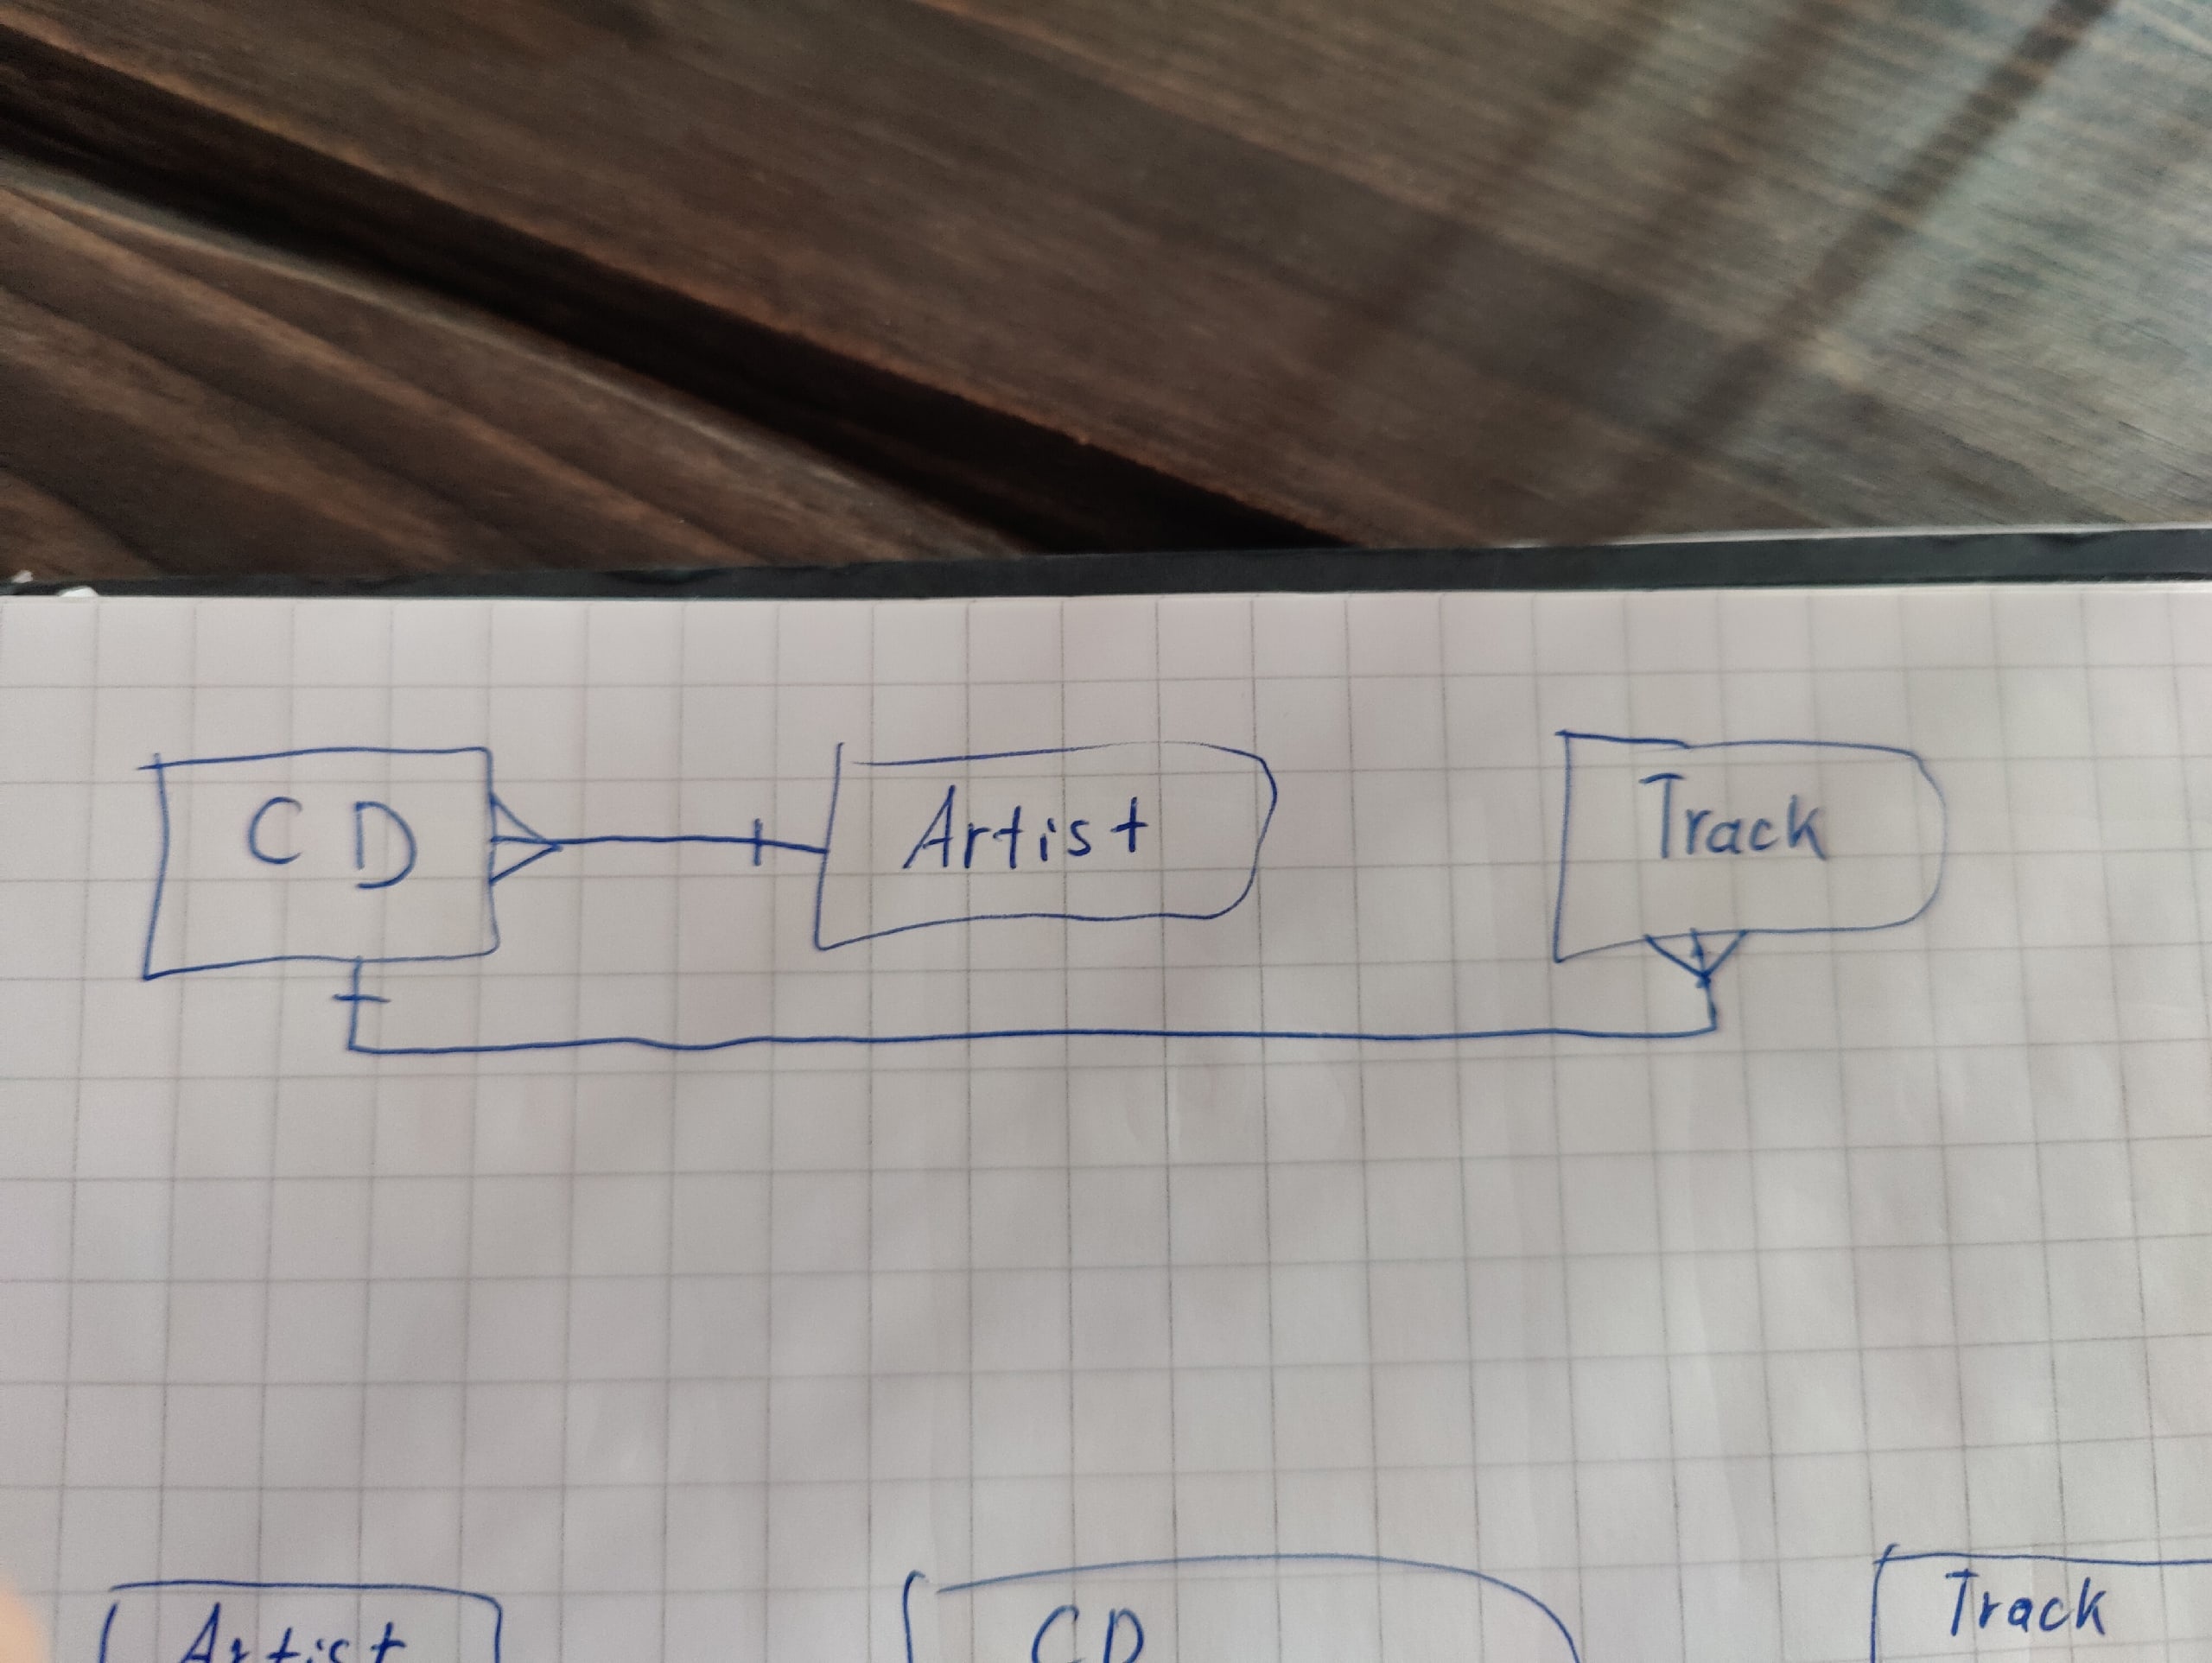 CD Artist Track
Artist CD Track